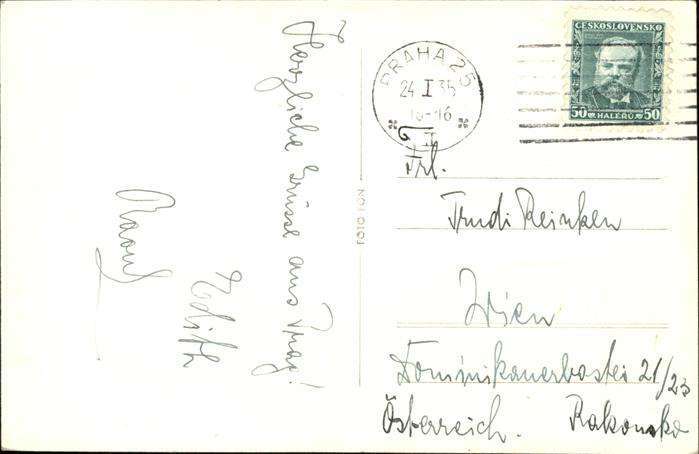 Herzliche Grüsse aus Prag!
Edith
Raoul
FOTO FON
PRAHA 25
24 I 35
II
ČESKOSLOVENSKO
50 HALÉŘŮ 50
Frl.
Trudi Reinken
Wien
Dominikanerbastei 21/23
Österreich. Rakousko